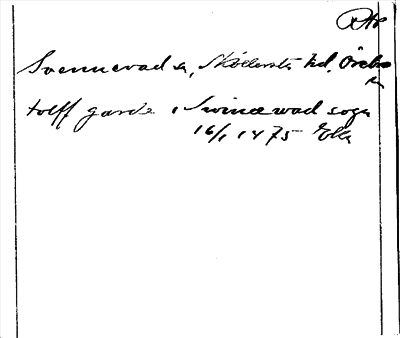 Rk
Svennevad sn, Sköllersta hd, Örebro
ln
tolff garda i Swinæwad sogn
16/1 1475 Ekn